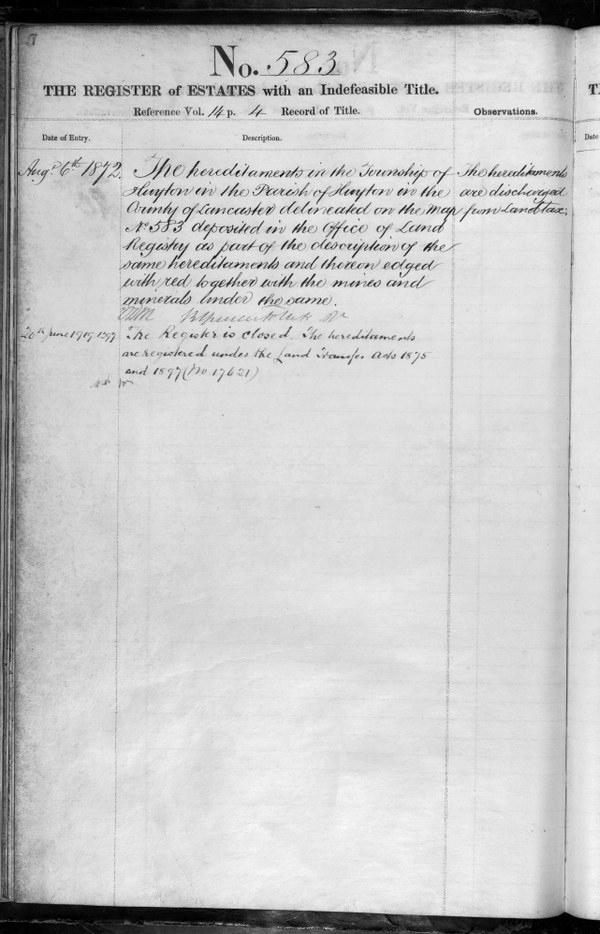 7
No. 583
THE REGISTER of ESTATES with an Indefeasible Title.
Reference Vol. 14 p. 4 Record of Title.
Observations.
Date of Entry.
Description.
Augt. 6th 1872.
The hereditaments in the Township of
Huyton in the Parish of Huyton in the
County of Lancaster delineated on the Map
No 583 deposited in the Office of Land
Registry as part of the description of the
same hereditaments and thereon edged
with red together with the mines and
minerals under the same.
The hereditaments
are discharged
from Land tax.
20th June 1919
The Register is closed. The hereditaments
are registered under the Land Transfer Acts 1875
and 1897 (No 17621)
Date